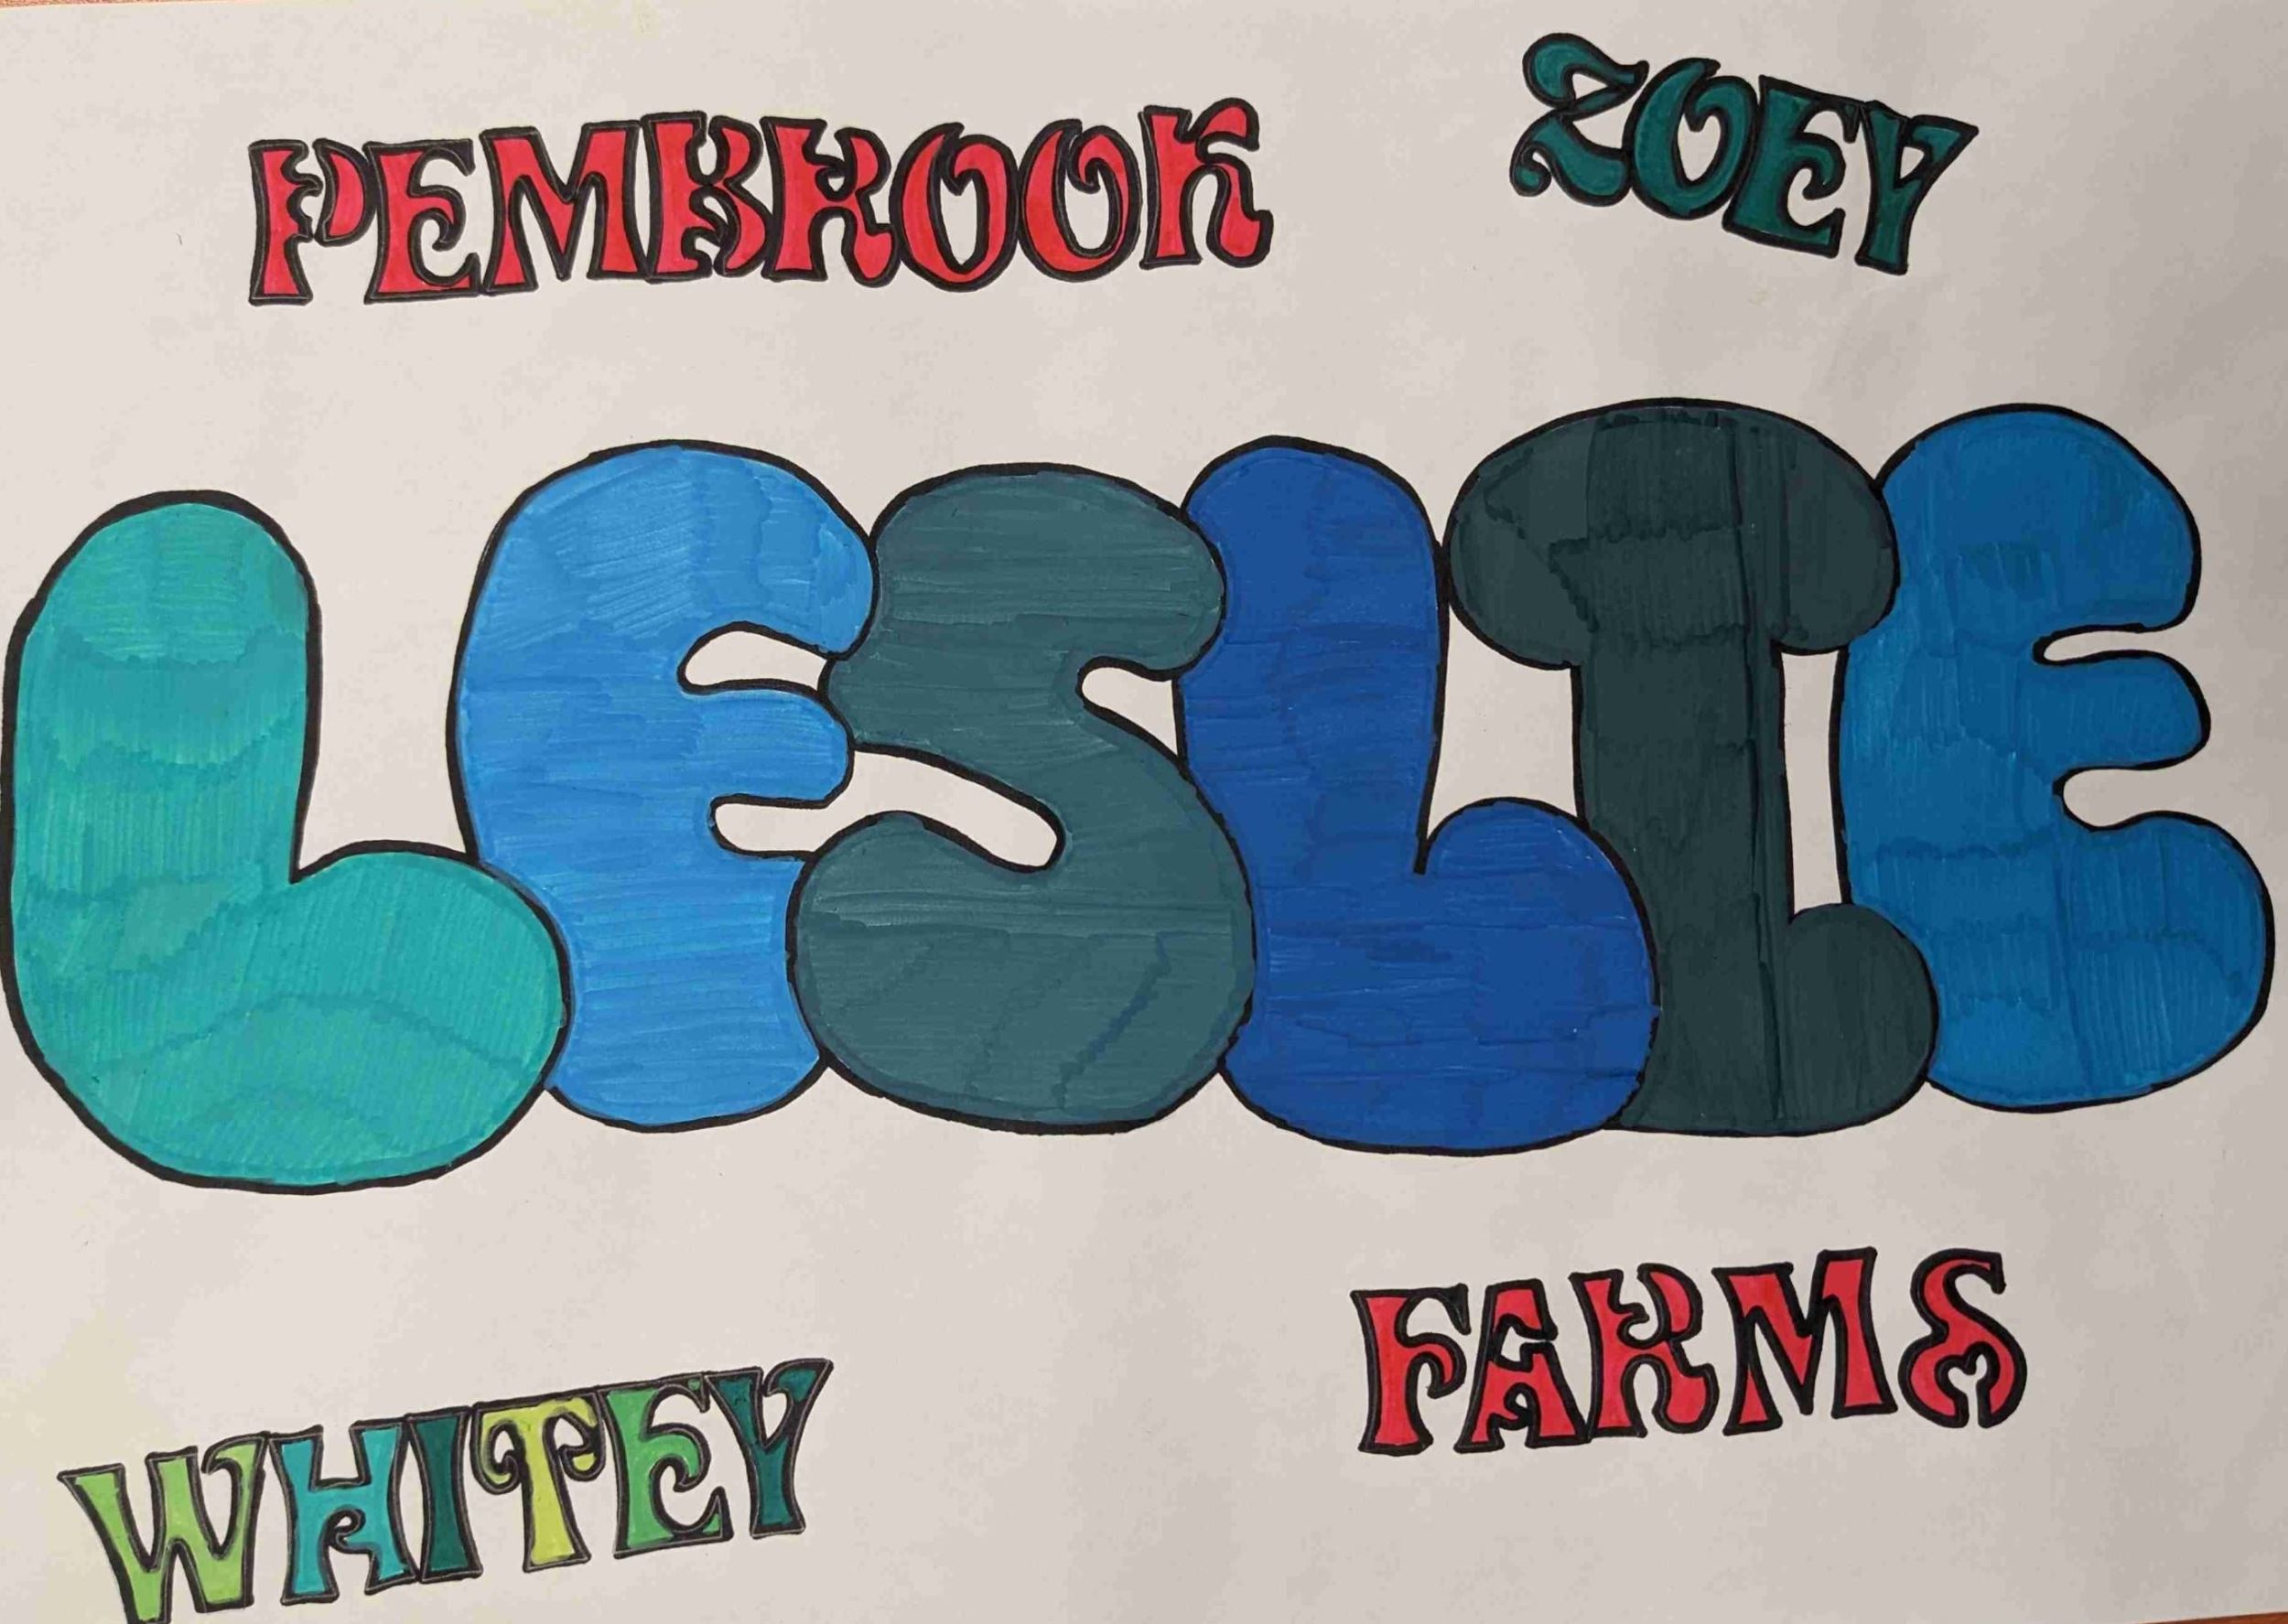 PEMBROOK
ZOEY
LESLIE
FARMS
WHITEY